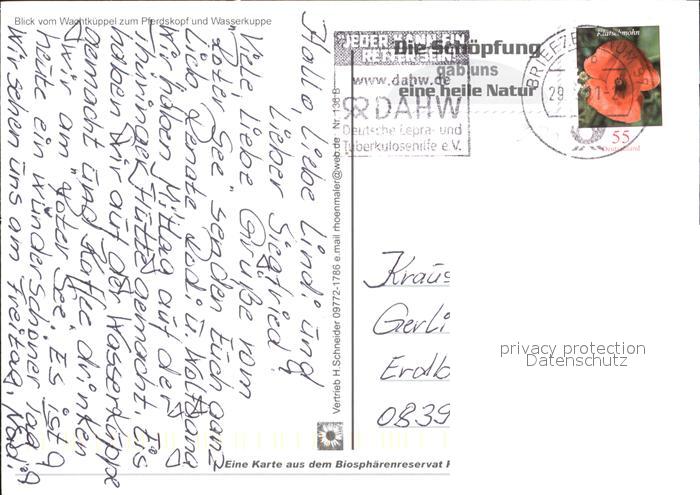 Blick vom Wachtküppel zum Pferdskopf und Wasserkuppe
Hallo, Liebe Lindi und
Lieber Siegfried!
Viele Liebe Grüße vom
"Roter See" senden Euch ganz
Lieb Renate Nodi u. Wolfgang
Wir haben Mittag auf der
Thüringer Hütte gemacht. Eis
haben wir auf der Wasserkuppe
gemacht und Kaffee drinken
wir am "Roter See". Es ist
heute ein wunderschöner Tag
Wir sehen uns am Freitag, Nodi
Vertrieb H.Schneider 09772-1786 e.mail rhoenmaler@web.de Nr. 136 B
JEDER KANN EIN
RETTER SEIN
www.dahw.de
DAHW
Deutsche Lepra- und
Tuberkulosenhilfe e.V.
Die Schöpfung
gab uns
eine heile Natur
BRIEFZE
29
Klatschmohn
55
Deutschland
Kraus
Gerli
Erolb
0839
privacy protection
Datenschutz
Eine Karte aus dem Biosphärenreservat R